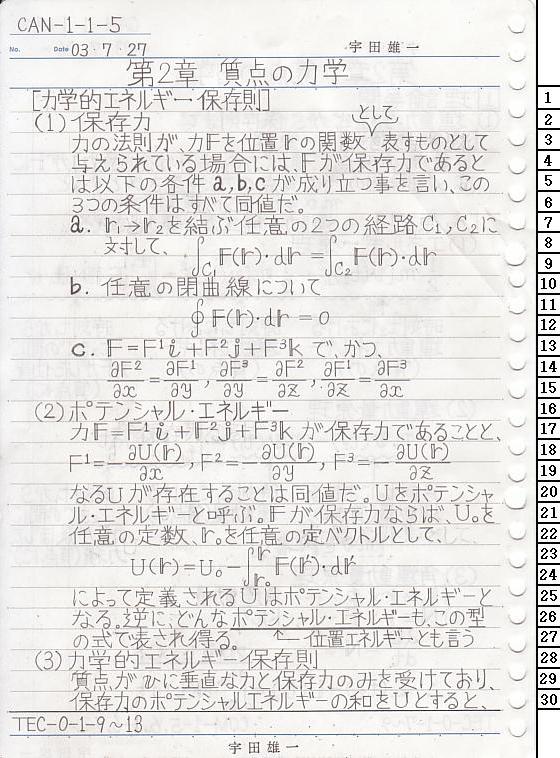 CAN-1-1-5
No. Date 03・7・27 宇田雄一
第2章 質点の力学
[力学的エネルギー保存則]
(1)保存力
として
力の法則が、力Fを位置rの関数 表すものとして
与えられている場合には、Fが保存力であると
は以下の各件a,b,cが成り立つ事を言い、この
3つの条件はすべて同値だ。
a. r₁→r₂を結ぶ任意の2つの経路C₁,C₂に
対して、 ∫C₁ F(r)・dr = ∫C₂ F(r)・dr
b. 任意の閉曲線について
∮ F(r)・dr = 0
c. F=F¹i+F²j+F³k で、かつ、
∂F²/∂x = ∂F¹/∂y , ∂F³/∂y = ∂F²/∂z , ∂F¹/∂z = ∂F³/∂x
(2)ポテンシャル・エネルギー
力F=F¹i+F²j+F³k が保存力であることと、
F¹=-∂U(r)/∂x , F²=-∂U(r)/∂y , F³=-∂U(r)/∂z
なるUが存在することは同値だ。Uをポテンシャ
ル・エネルギーと呼ぶ。Fが保存力ならば、U₀を
任意の定数、r₀を任意の定ベクトルとして、
U(r)=U₀-∫r₀^r F(r')・dr'
によって定義されるUはポテンシャル・エネルギーと
なる。逆に、どんなポテンシャル・エネルギーも、この型
の式で表され得る。 ↑位置エネルギーとも言う
(3)力学的エネルギー保存則
質点がvに垂直な力と保存力のみを受けており、
保存力のポテンシャルエネルギーの和をUとすると、
TEC-0-1-9~13
宇田雄一
1
2
3
4
5
6
7
8
9
10
11
12
13
14
15
16
17
18
19
20
21
22
23
24
25
26
27
28
29
30